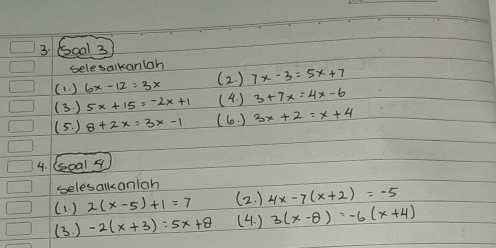 3. Soal 3
Selesaikanlah
(1.) 6x - 12 = 3x (2.) 7x - 3 = 5x + 7
(3.) 5x + 15 = -2x + 1 (4.) 3 + 7x = 4x - 6
(5.) 8 + 2x = 3x - 1 (6.) 3x + 2 = x + 4
4. Soal 4
Selesaikanlah
(1.) 2(x - 5) + 1 = 7 (2.) 4x - 7(x + 2) = -5
(3.) -2(x + 3) = 5x + 8 (4.) 3(x - 8) = -6(x + 4)